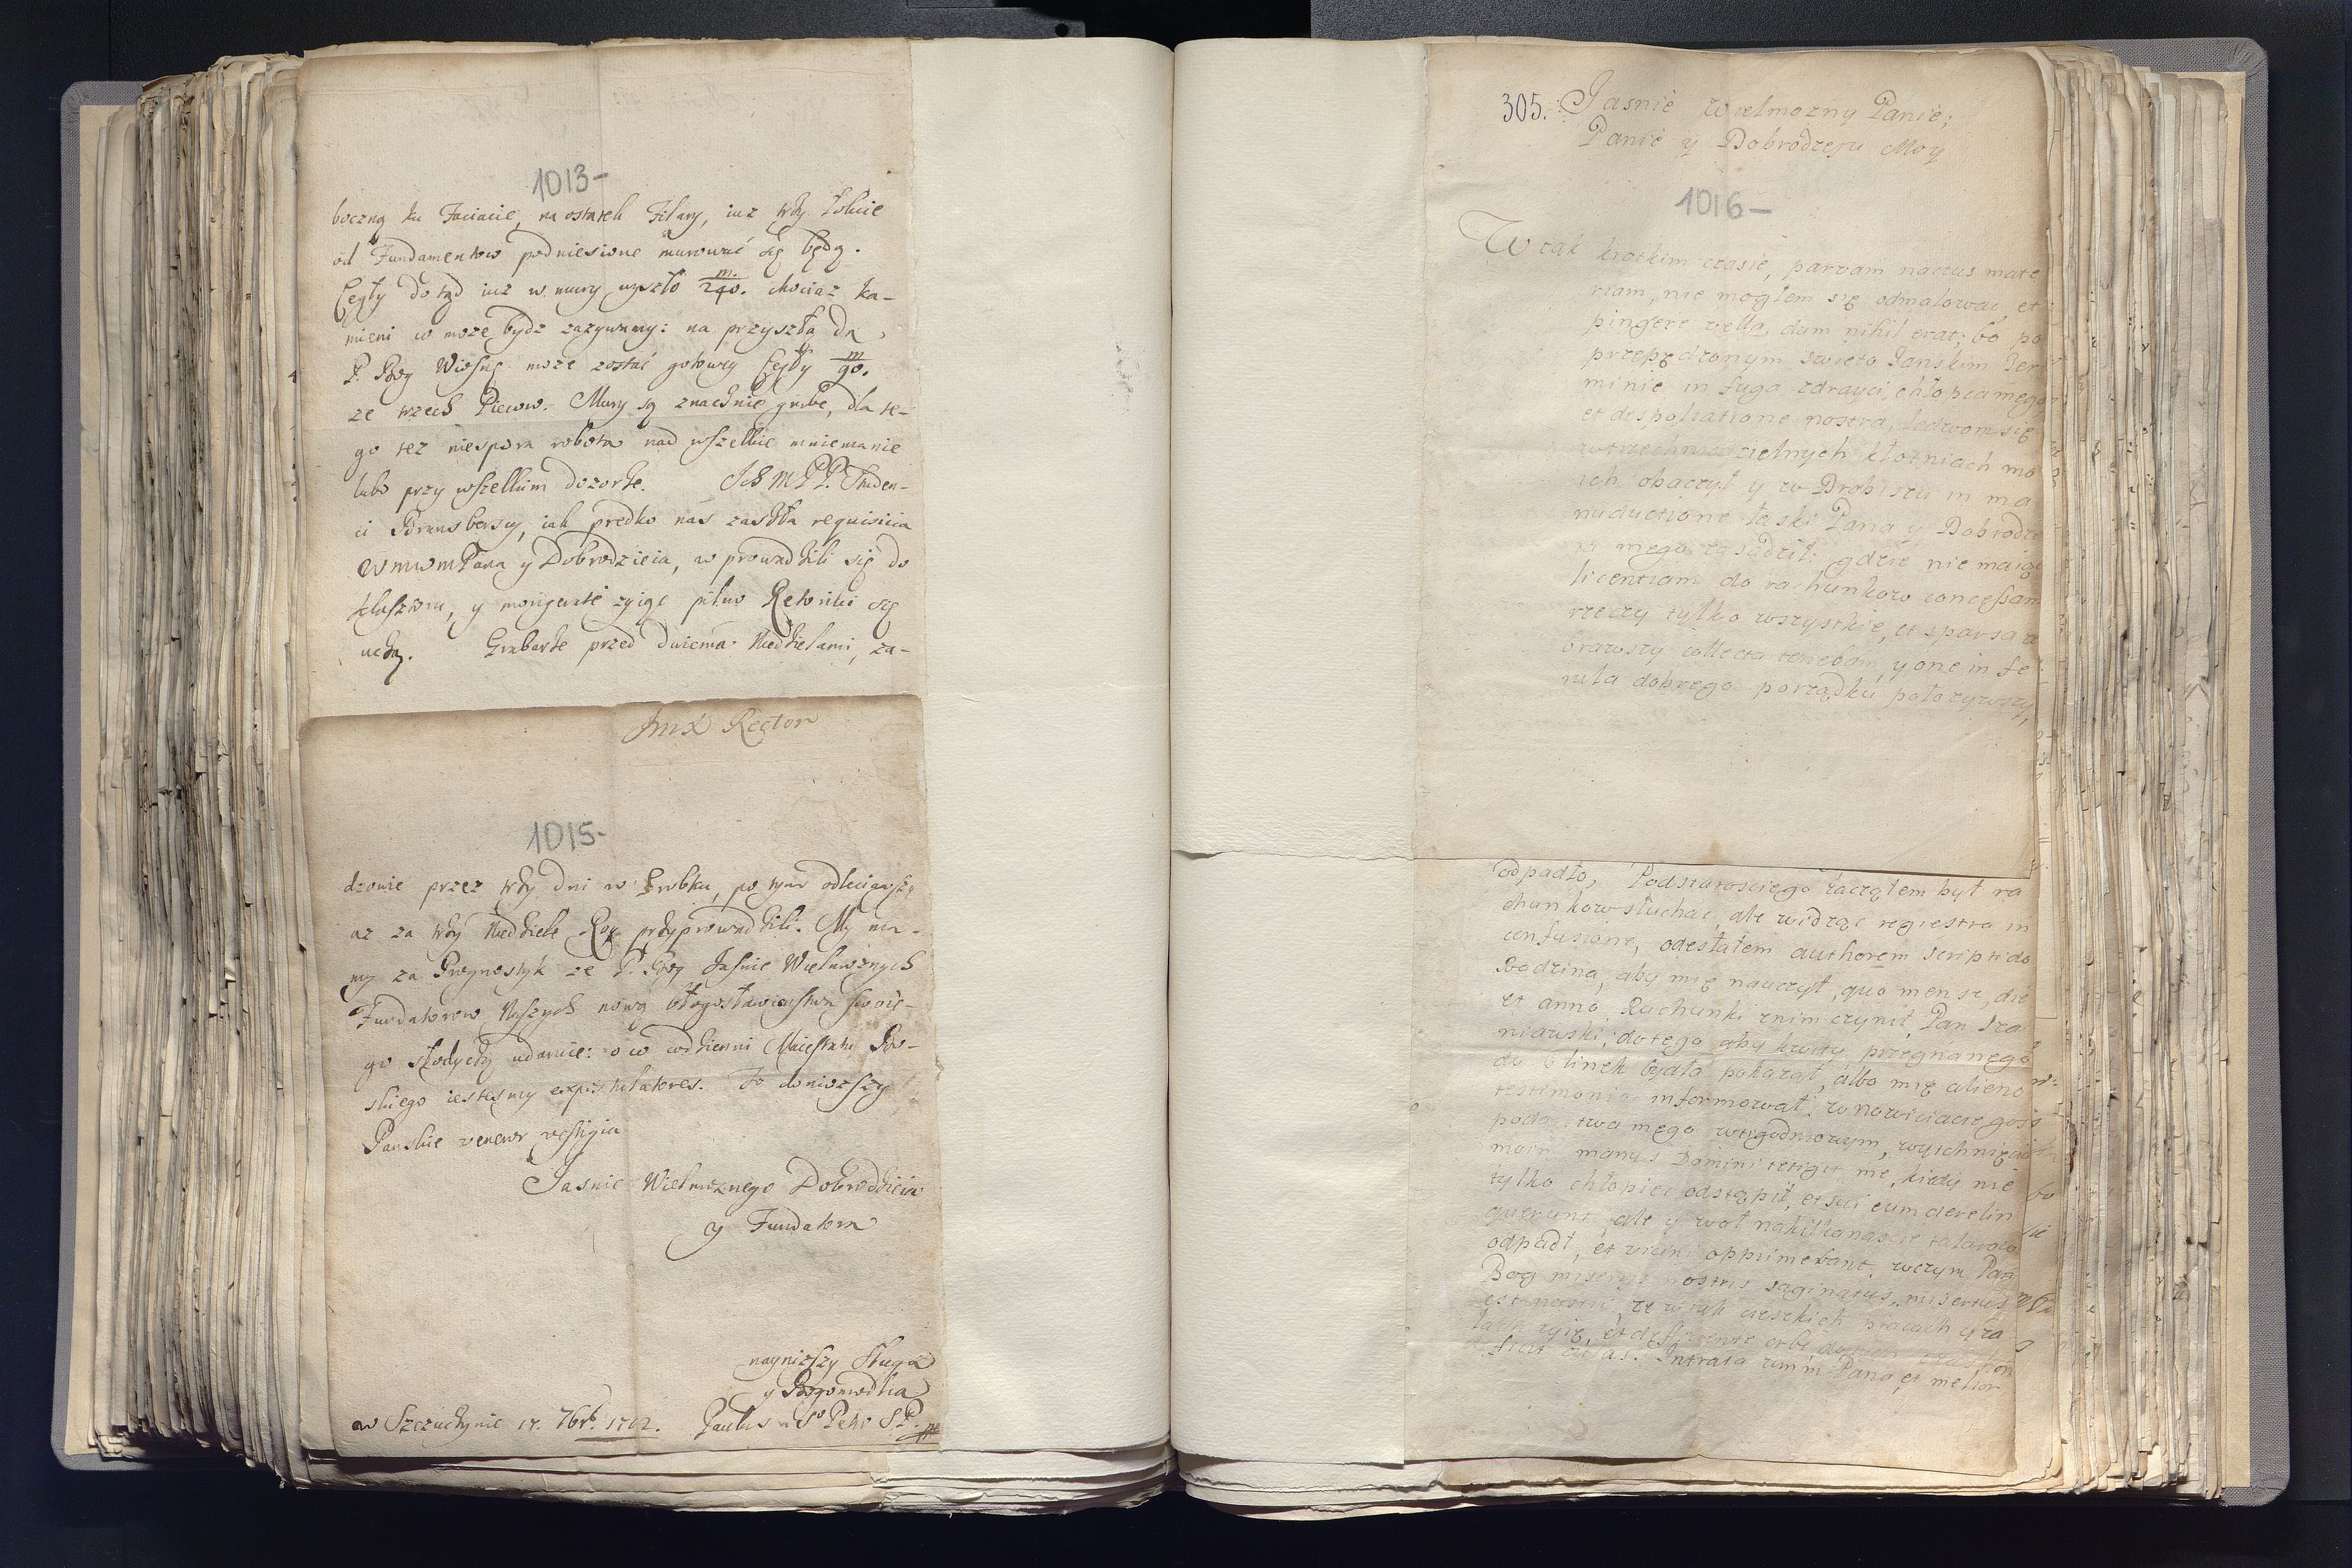 1013-
boczną ku Faciacie, na ostatek Filary, iuz trzy łokcie
od Fundamentow podniesione murować się będą.
Cegły do tąd iuz w mury wyszło m/240. chociaz ka-
mieni co moze bydz zazywamy: na przyszłą da
P. Bog Wiosnę moze zostać gotowey Cegły m/90.
ze trzech Piecow. Mury są znacznie grube, dla te-
go tez niespora robota nad wszelkie mniemanie
lubo przy wszelkim dozorze. Ich MPP. Studen-
ci Bransberscy, iak prędko nas zaszła requisicia
WMWMPana y Dobrodzieia, w prowadzili się do
klasztoru, y morigeratè zyiąc pilno Retoriki się
uczą. Grabarze przed dwiema Niedzielami, za-
JmX Rector
1015-
dzonie przez trzy dni w Grobku, po tym odleciawszy
az za trzy Niedziele Roy przyprowadzili. My ma-
my za Prognostyk ze P. Bog Jasnie Wielmoznych
Fundatorow Naszych nową błogosławienstwa swoie-
go słodyczą udaruie: o co codzienni Maiestatu Bo-
skiego iestesmy expostulatores. To donioszszy
Panskie veneror vestigia
Jasnie Wielmoznego Dobrodzieia
y Fundatora
nayniższy Sługa
y Bogomodlca
w Szczuczynie 17. 7br. 1702. Paulus a So Petro S.P.
305. Jasnie Wielmozny Panie;
Panie y Dobrodzeju Moy
1016-
W tak krotkim czasie, parvam nactus mate
riam, nie mogłem się odmalować, et
pingere vella, dum nihil erat; bo po
przepędzonym swięto Janskim Ter
minie in fuga zdraycy chłopca mego
et despoliatione nostra, ledwom się
cielnych kłotniach mo
ich obaczył y w Drohiszu in ma
nuductione łaski Pana y Dobrodze
ia mego zasadził: gdzie nie maiąc
licentiam do rachunkow concessam
rzeczy tylko wszystkie, et sparsa ze
brawszy collecta tenebam, y one in fe
rula dobrego porządku położywszy,
odpadło, Podstarosciego zacząłem był ra
chunkow słuchac, ale widząc regiestra in
confusione, odesłałem authorem scripti do
Radzina, aby mię nauczył, quo mense, die
et anno Rachunki znim czynił, Pan Sta
niawski; do tego aby kwity przegnanego
do Glinek bydła pokazał, albo mię alieno
testimonio informował. w nowiciacie gos
podarstwa mego wtygodniowym, wytchnięciu
moim manus Domini tetigit me, kiedy nie
tylko chłopiec odstąpił, et sui eum derelin
querunt, ale y woł nakilkanascie talarow
odpadł, et vicini opprimebant, wczym Pan
Bog miseriis nostris saginatus, misertus
est nostri, ze w tak cieszkich pracach y fa
tach zyię, et
Intrata zmm Pana, et melior